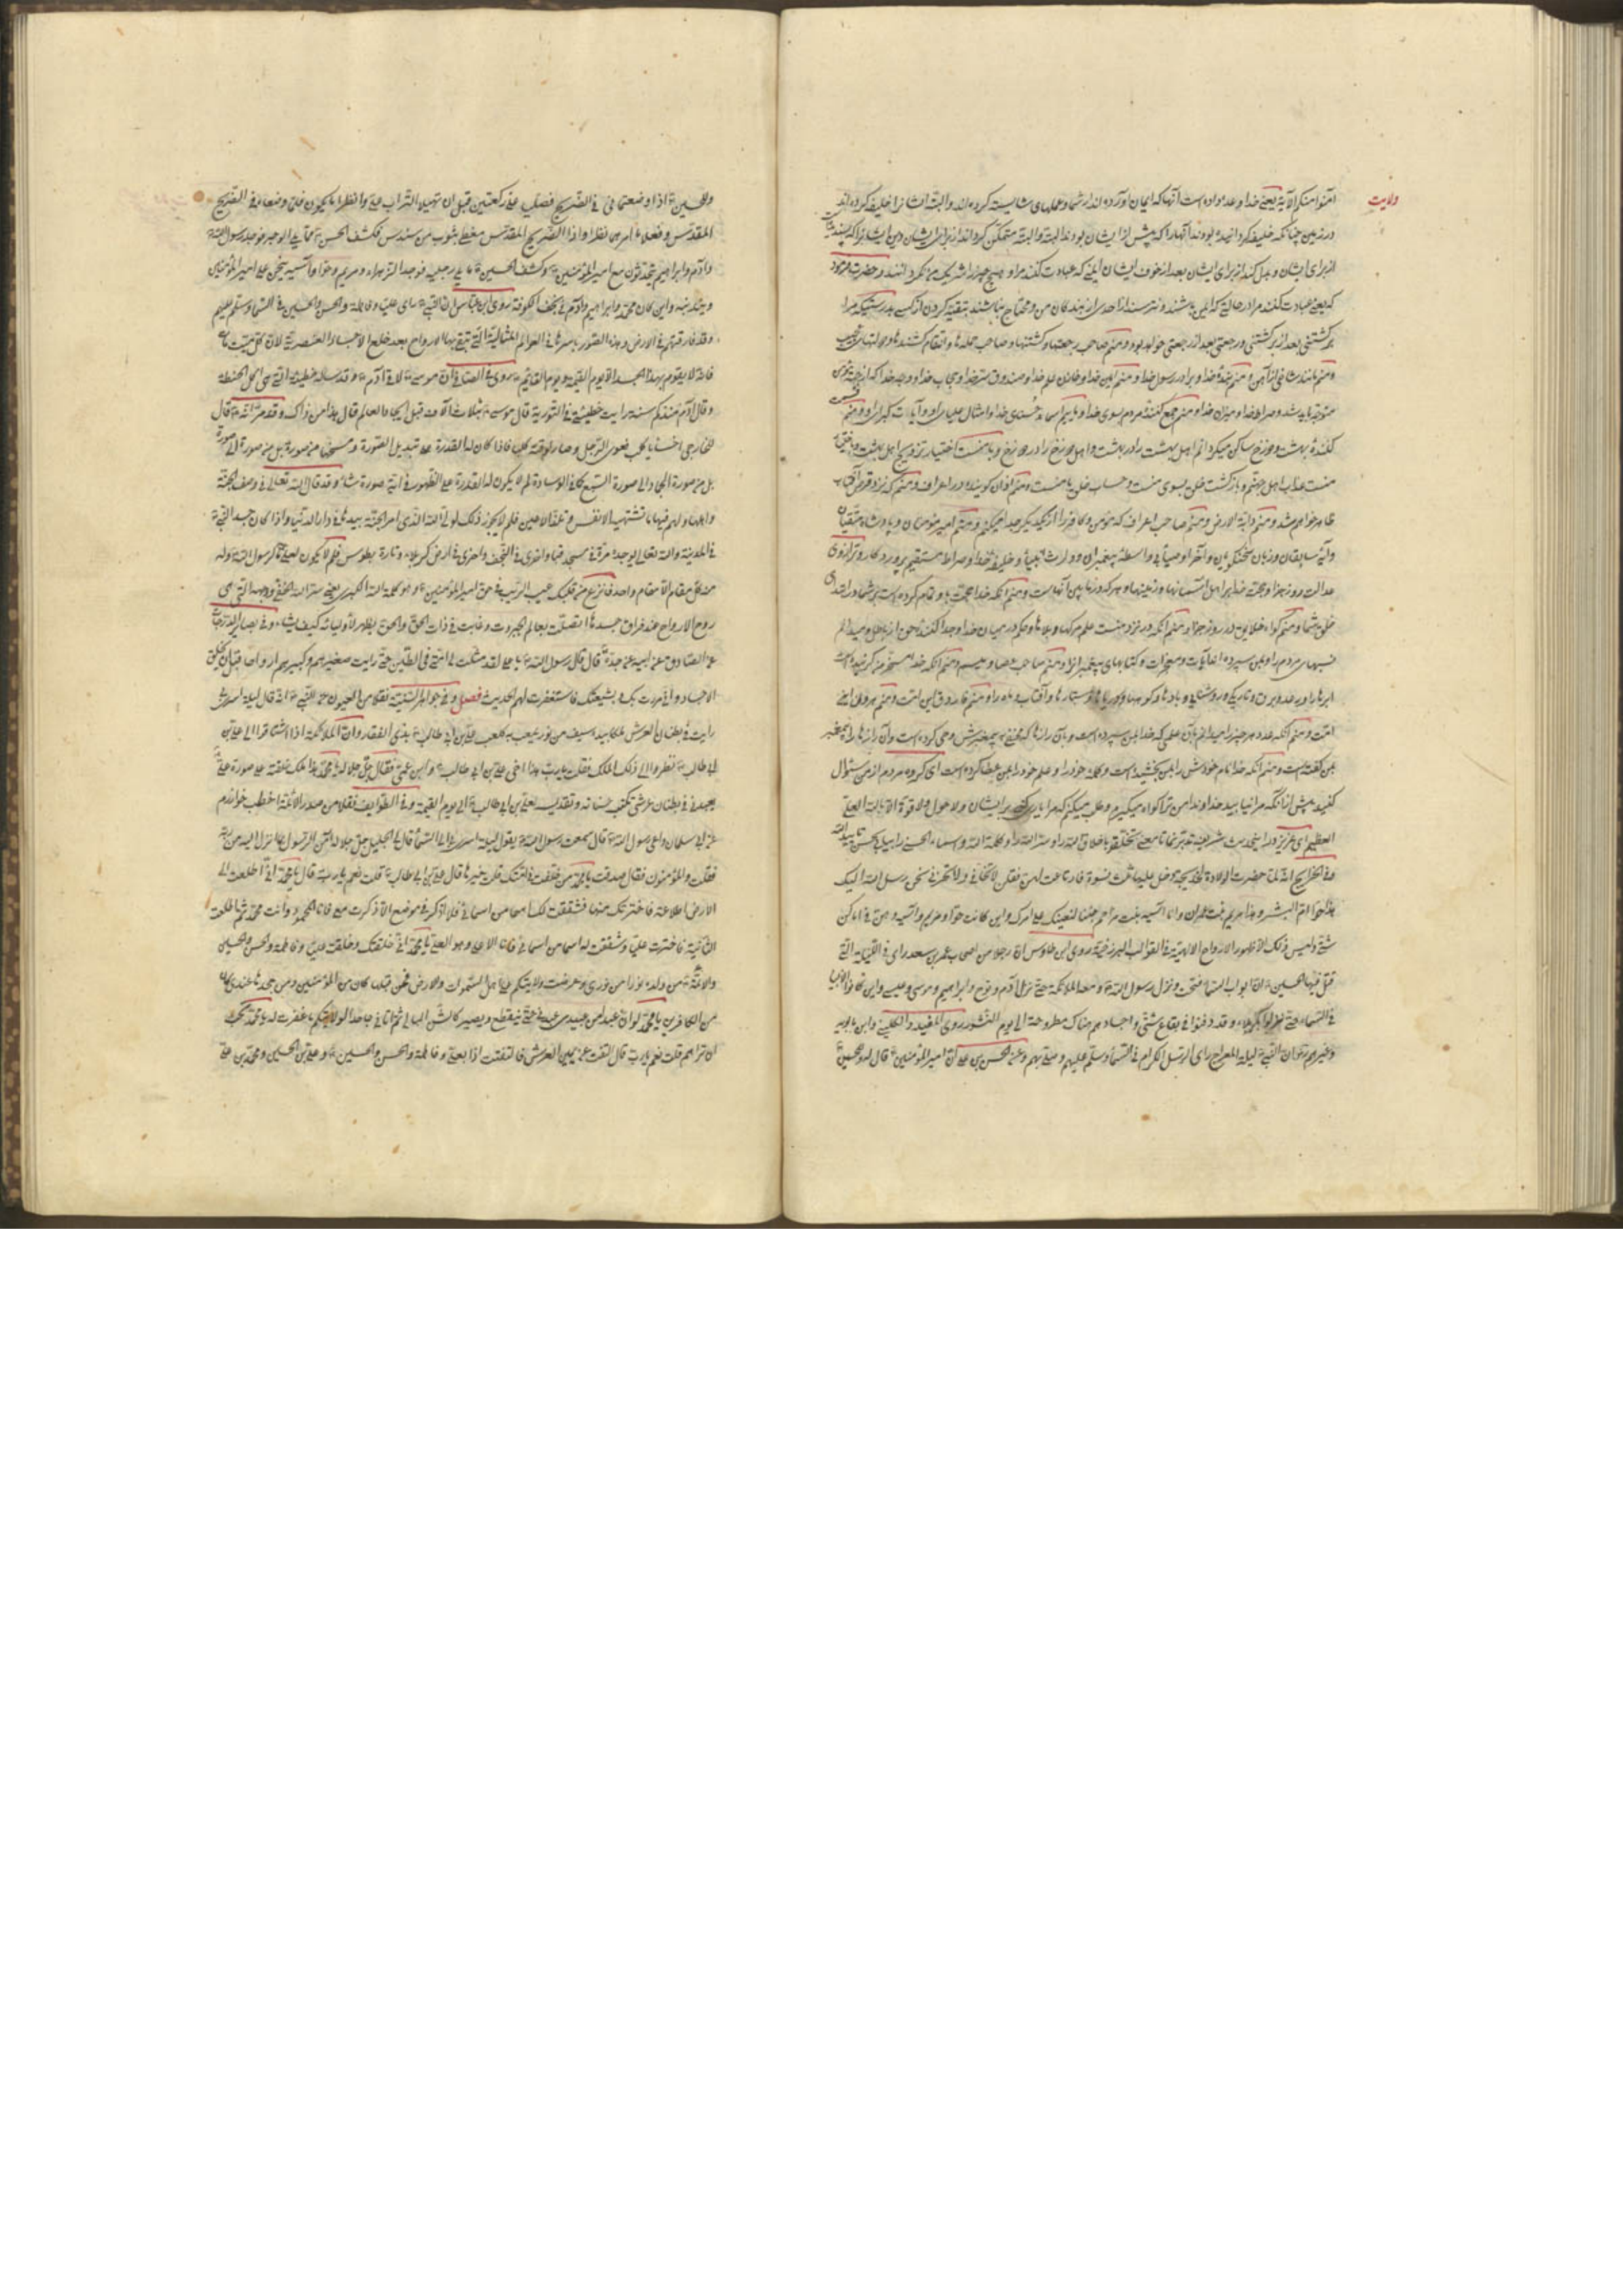 ولایت
آمنوا منکم الآیة یعنی خدا وعده داده است آنها که ایمان آورده اند از شما و عملهای شایسته کرده اند والبته ایشانرا خلیفه کرده اند
در زمین چنانکه خلیفه گردانیده بودند آنها را که پیش از ایشان بودند البته والبته متمکن گرداند از برای ایشان دین ایشانرا که پسندیده
از برای ایشان و بدل کند از برای ایشان بعد از خوف ایشان ایمنی که عبادت کنند مرا و هیچ چیز را شریک من نگردانند و حضرت فرمود
که یعنی عبادت کنند مرا در حالتی که ایمن باشند و نترسند از احدی از بندگان من و محتاج نباشند بتقیه کردن از کسی بدرستیکه مرا
برگشتنی بعد از برگشتنی و رجعتی بعد از رجعتی خواهد بود و منم صاحب رجعتها و گشتنها و صاحب حمله ها و انتقام کشنده ها و دولتهای عجیب
و منم مانند شاخی از آهن و منم بنده خدا و برادر رسول خدا و منم امین خدا و خازن علم خدا و صندوق سر خدا و حجاب خدا و وجه خدا که از جهة من بسوی
متوجه باید شد و صراط خدا و میزان خدا و منم جمع کننده مردم بسوی خدا و مائیم اسماء حسنای خدا و امثال علیای او و آیات کبرای او و منم قسمت
کننده بهشت و دوزخ ساکن میگردانم اهل بهشت را در بهشت و اهل دوزخ را در دوزخ و با منست اختیار تزویج اهل بهشت و با اختیار
منست عذاب اهل جهنم و بازگشت خلق بسوی منست و حساب خلق با منست و منم اذان گوینده در اعراف و منم که نزد قرص آفتاب
ظاهر خواهم شد و منم دابة الارض و منم صاحب اعراف که مؤمن و کافر را از یکدیگر جدا میکنم و منم امیر مؤمنان و پادشاه متقیان
و آیه سابقان و زبان سخنگویان و آخر اوصیای بی واسطه پیغمبران و وارث انبیا و خلیفه خدا و صراط مستقیم پروردگار و ترازوی
عدالت روز جزا و حجة خدا بر اهل آسمانها و زمینها و هر که در مابین آنهاست و منم آنکه خدا حجت باو تمام کرده است بر شما در ابتدای
خلق شما و منم گواه خلایق در روز جزا و منم آنکه در نزد منست علم مرگها و بلاها و حکم در میان خدا و جدا کننده حق از باطل و میدانم
نسبهای مردم را و بمن سپرده اند آیات و معجزات و کتابهای پیغمبرانرا و منم صاحب عصا و میسم و منم آنکه خدا مسخر من گردانیده است
ابرها را و رعد و برق و تاریکی و روشنائی و بادها و کوهها و دریاها و ستارها و آفتاب و ماه را و منم فاروق این امت و منم هادی این
امت و منم آنکه عدد هر چیز را میدانم بآن علمی که خدا بمن سپرده است و بآن رازها که مخفی به پیغمبرش وحی کرده است و آن رازها را پیغمبر
بمن گفته است و منم آنکه خدا نام خودش را بمن بخشیده است و کلمه خود را و علم خود را بمن عطا کرده است ای گروه مردم از من سئوال
کنید پیش از آنکه مرا نیابید خداوندا من ترا گواه میگیرم و طلب میکنم که مرا یاری کنی بر ایشان ولا حول ولا قوة الا بالله العلی
العظیم ای عزیز در این حدیث شریف تدبر نما تا معنی تخلقوا باخلاق الله را و سر الله را و کلمة الله و اسماء الحسنی را بیابی بحسن تایید الله
وفی الخرایج انه لما حضرت الولادة لخدیجة دخل علیها ثلث نسوة فارتاعت لهن فقلن لا تخافی ولا تحزنی نحن رسل الله الیک
هذا حوا ام البشر و هذا مریم بنت عمران وانا آسیه بنت مزاحم جئنا لنعینک علی امرک واین کانت حوا و مریم وآسیه وهن فی اماکن
شتی ولیس ذلک الا ظهور الارواح الالهیة فی القوالب البرزخیة روی ابن طاوس ان رجلا من اصحاب عمر بن سعد رای فی اللیلة التی
قتل فیها الحسین ان ابواب السماء فتحت ونزل رسول الله ومعه الملائکة حتی نزل آدم ونوح وابراهیم وموسی وعیسی واین کانوا الانبیا
فی السماء حتی نزلوا کربلاء وقد دفنوا فی بقاع شتی واجسادهم هناک مطروحة الی یوم النشور روی المفید والکلینی وابن بابویه
وغیرهم ان النبی لیلة المعراج رای الرسل الکرام فی السماء وسلم علیهم وصلی بهم وعن الحسن بن علی ان امیر المؤمنین قال له وللحسین
وللحسین اذا وضعتمانی فی الضریح فصلیا علی رکعتین قبل ان تهیلا التراب علی وانظرا ما یکون فلما وضعاه فی الضریح
المقدس وفعلا ما امر به نظرا واذا الضریح المقدس مغطی بثوب من سندس فکشف الحسن مما یلی الوجه فوجد رسول الله
وآدم وابراهیم یتحدثون مع امیر المؤمنین وکشف الحسین مما یلی رجلیه فوجد الزهراء ومریم وحوا وآسیه ینحن علی امیر المؤمنین
ویندبنه واین کان محمد وابراهیم وآدم فی نجف الکوفة روی ابن عباس ان النبی رای علیا وفاطمة والحسن والحسین فی السماء وسلم علیهم
وقد فارقتهم فی الارض وهذه الصور باسرها فی العوالم المثالیة التی تبقی بها الارواح بعد خلع الاجساد العنصریة لان کل میت مات
فانه لا یقوم بهذا الجسد الا یوم القیمة ویوم القائم روی فی الصافی ان موسی لاقا آدم وقد ساله خطیئته التی هی اکل الحنطة
وقال آدم منذ کم سنة رایت خطیئتی فی التوریة قال موسی بثلاث آلاف قبل ایجاد العالم قال هذا من ذاک وقد مر انه قال
للخارجی اخسأ یا کلب فعوی الرجل وصار لوقته کلبا فاذا کان له القدرة علی تبدیل الصورة ومسخها من صورة بل من صورة الی صورة
بل من صورة الجماد الی صورة السبع کما فی الوسادة لم لا یکون له القدرة علی الظهور فی ایة صورة شاء وقد قال الله تعالی فی وصف الجنة
واهلها ولهم فیها ما تشتهیه الانفس وتلذ الاعین فلم لا یجوز ذلک لولی الله الذی امر الجنة بیده فی دار الدنیا واذا کان جسد النبی
فی المدینة والله تعالی یوجده مرة فی مسجد قبا واخری فی النجف واخری فی ارض کربلاء وتارة بطوس فلم لا یکون لعلی ما لرسول الله وله
منه کل مقام الا مقام واحد فانزع من قلبک عیب الریب فی حق امیر المؤمنین وهو کلمة الله الکبری یعنی سر الله الخفی ووجهه التی هی
روح الارواح عند فراق جسدها اتصلت بعالم الجبروت وغابت فی ذات الحق والحق یظهر لأولیائه کیف یشاء وفی بصایر الدرجات
عن الصادق عن ابیه عن جده قال قال رسول الله یا علی لقد مثلت لی امتی فی الطین حتی رایت صغیرهم وکبیرهم ارواحا قبل ان تخلق
الاجساد وانی مررت بک وبشیعتک فاستغفرت لهم الحدیث فصل وفی جواهر السنیة نقلا من العیون عن النبی انه قال لیلة اسری
رایت فی بطنان العرش ملکا بیده سیف من نور یلعب به کما یلعب علی بن ابی طالب بذی الفقار وان الملائکة اذا اشتاقوا الی علی بن
ابی طالب نظروا الی ذلک الملک فقلت یا رب هذا اخی علی بن ابی طالب وابن عمی فقال جل جلاله یا محمد هذا ملک خلقته علی صورة علی
یعبدنی فی بطنان عرشی تکتب حسناته وتقدیسه لعلی بن ابی طالب الی یوم القیمة وفی الطوایف نقلا من صدر الائمة اخطب خوارزم
عن ابی سلمان راعی رسول الله قال سمعت رسول الله یقول لیلة اسری بی الی السماء قال لی الجلیل جل جلاله آمن الرسول بما انزل الیه من ربه
فقلت والمؤمنون فقال صدقت یا محمد من خلفت فی امتک قلت خیرها قال علی بن ابی طالب قلت نعم یا رب قال یا محمد انی اطلعت الی
الارض اطلاعة فاخترتک منها فشققت لک اسما من اسمائی فلا اذکر فی موضع الا ذکرت معی فانا المحمود وانت محمد ثم اطلعت
الثانیة فاخترت علیا وشققت له اسما من اسمائی فانا الاعلی وهو العلی یا محمد انی خلقتک وخلقت علیا وفاطمة والحسن والحسین
والائمة من ولده نورا من نوری وعرضت ولایتکم علی اهل السموات والارض فمن قبلها کان من المؤمنین ومن جحدها عندی کان
من الکافرین یا محمد لو ان عبدا من عبیدی عبدنی حتی ینقطع ویصیر کالشن البالی ثم اتانی جاحدا لولایتکم ما غفرت له یا محمد تحب
ان تراهم قلت نعم یا رب قال التفت عن یمین العرش فالتفت اذا بعلی وفاطمة والحسن والحسین وعلی بن الحسین ومحمد بن علی